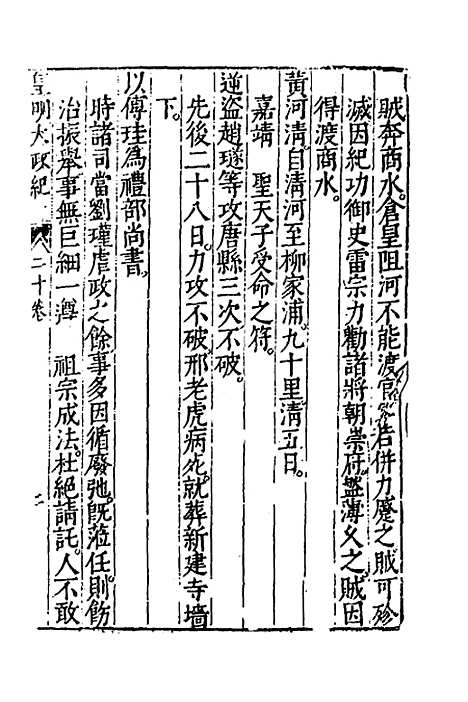 賊奔商水倉皇阻河不能渡官兵若併力蹙之賊可殄
滅因紀功御史雷宗力勸諸將朝崇府盤薄乆之賊因
得渡商水。
黃河清自清河至柳家浦。九十里清五日。
嘉靖　聖天子受命之符。
逆盜趙璲等攻唐縣三次不破。
先後二十八日。力攻不破邢老虎病死就葬新建寺墻
下。
以傅珪爲禮部尚書。
時諸司當劉瑾虐政之餘事多因循廢弛。旣蒞任則飭
治振舉事無巨細一遵　祖宗成法。杜絕請託。人不敢
皇明大政紀　二十卷　二